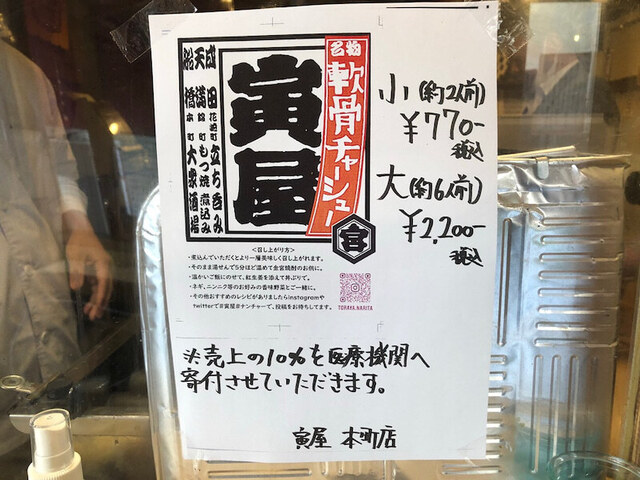 成田 花咲町 立ち呑み
天満 錦町 もつ焼 煮込み
船橋 本町 大衆酒場
寅屋
名物
軟骨チャーシュー
宮
小(約2人前)
¥770-
税込
大(約6人前)
¥2,200-
税込
<召し上がり方>
・煮込んでいただくとより一層美味しく召し上がれます。
・そのまま湯せんで5分ほど温めて金宮焼酎のお供に。
・温かいご飯にのせて、紅生姜を添えて丼ぶりで。
・ネギ、ニンニク等のお好みの香味野菜とご一緒に。
・その他おすすめのレシピがありましたらinstagramや
twitterで#寅屋#ナンチャーで、投稿をお待ちしてます。
TORAYA.NARITA
※売上の10%を医療機関へ
寄付させていただきます。
寅屋 本町店